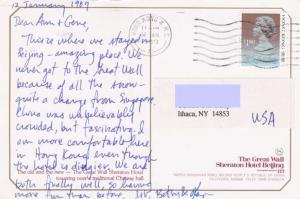 12 January 1989
Dear Ann + Gene,
There where we stayed in
Beijing - amazing place. We
never got to the Great Wall
because of all the snow -
quite a change from Singapore.
China was unbelievably
crowded, but fascinating. I
am more comfortable here
in Hong Kong even though
the hotel is dingier. We are
both finally well, so having
more fun than before.
The old and the new - The Great Wall Sheraton Hotel
towering over a traditional Chinese hall.
HONG KONG
$1.80
Ithaca, NY 14853
USA
The Great Wall
Sheraton Hotel Beijing